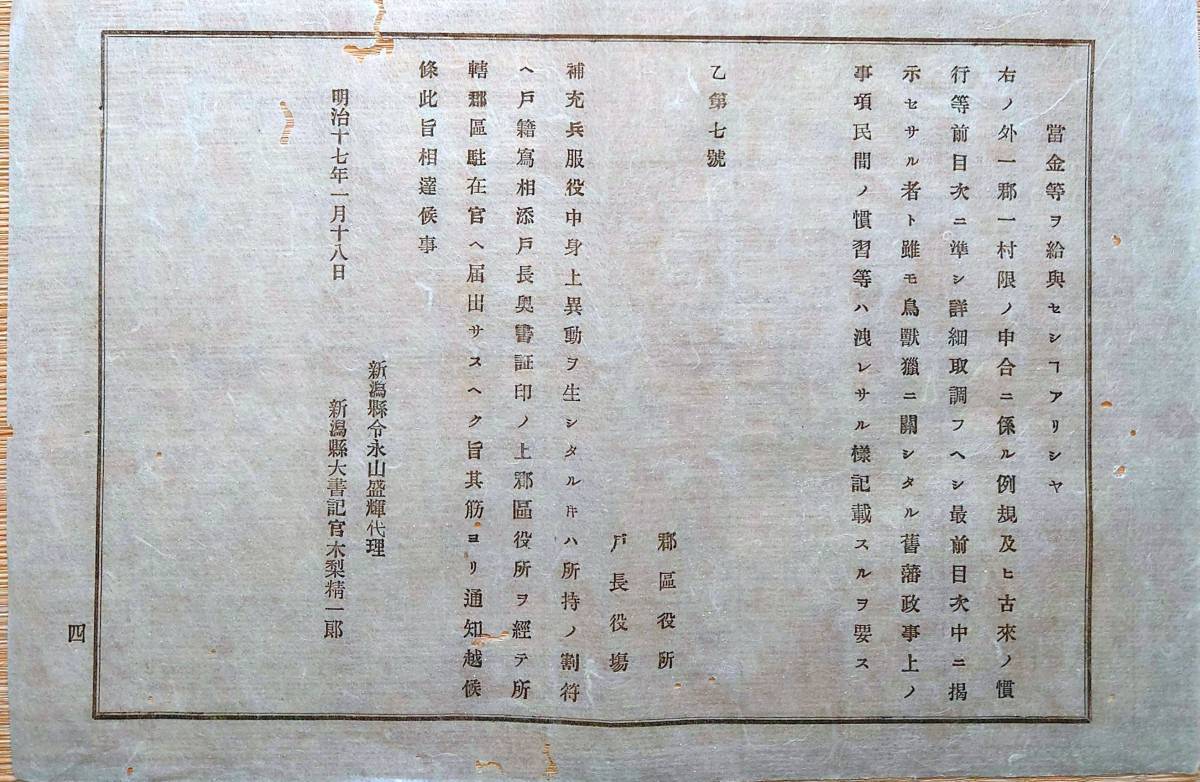 當金等ヲ給與セシヿアリシヤ
右ノ外一郡一村限ノ申合ニ係ル例規及ヒ古來ノ慣
行等前目次ニ準シ詳細取調フヘシ最前目次中ニ揭
示セサル者ト雖モ鳥獸獵ニ關シタル舊藩政事上ノ
事項民間ノ慣習等ハ洩レサル樣記載スルヲ要ス
乙第七號
郡區役所
戸長役塲
補充兵服役中身上異動ヲ生シタル𪜈ハ所持ノ割符
ヘ戸籍寫相添戸長奧書証印ノ上郡區役所ヲ經テ所
轄郡區駐在官ヘ届出サスヘク旨其筋ヨリ通知越候
條此旨相達候事
明治十七年一月十八日
新潟縣令永山盛輝代理
新潟縣大書記官木梨精一郞
四